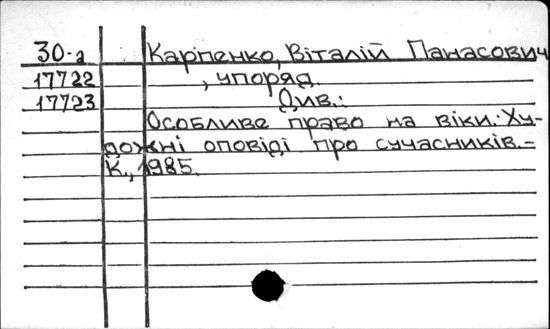 30-а Карпенко, Віталій Панасович
17722 , упоряд.
17723 Див.:
Особливе право на віки: Ху-
дожні оповіді про сучасників.-
К., 1985.